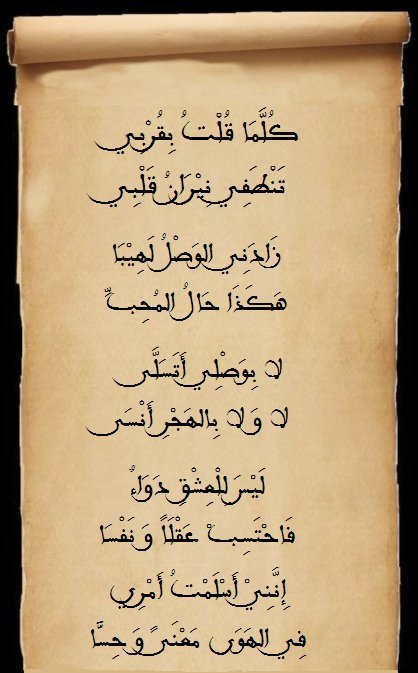 كُلَّمَا قُلْتُ بِقُرْبِي
تَنْطَفِي نِيْرَانُ قَلْبِي
زَادَنِي الوَصْلُ لَهِيْبَا
هَكَذَا حَالُ المُحِبِّ
لا بِوَصْلِي أَتَسَلَّى
لا وَلا بِالهَجْرِ أَنْسَى
لَيْسَ لِلْعِشْقِ دَوَاءٌ
فَاحْتَسِبْ عَقْلَاً وَنَفْسَا
إِنَّنِيْ أَسْلَمْتُ أَمْرِي
فِي الهَوَى مَعْنَىً وَحِسَّا